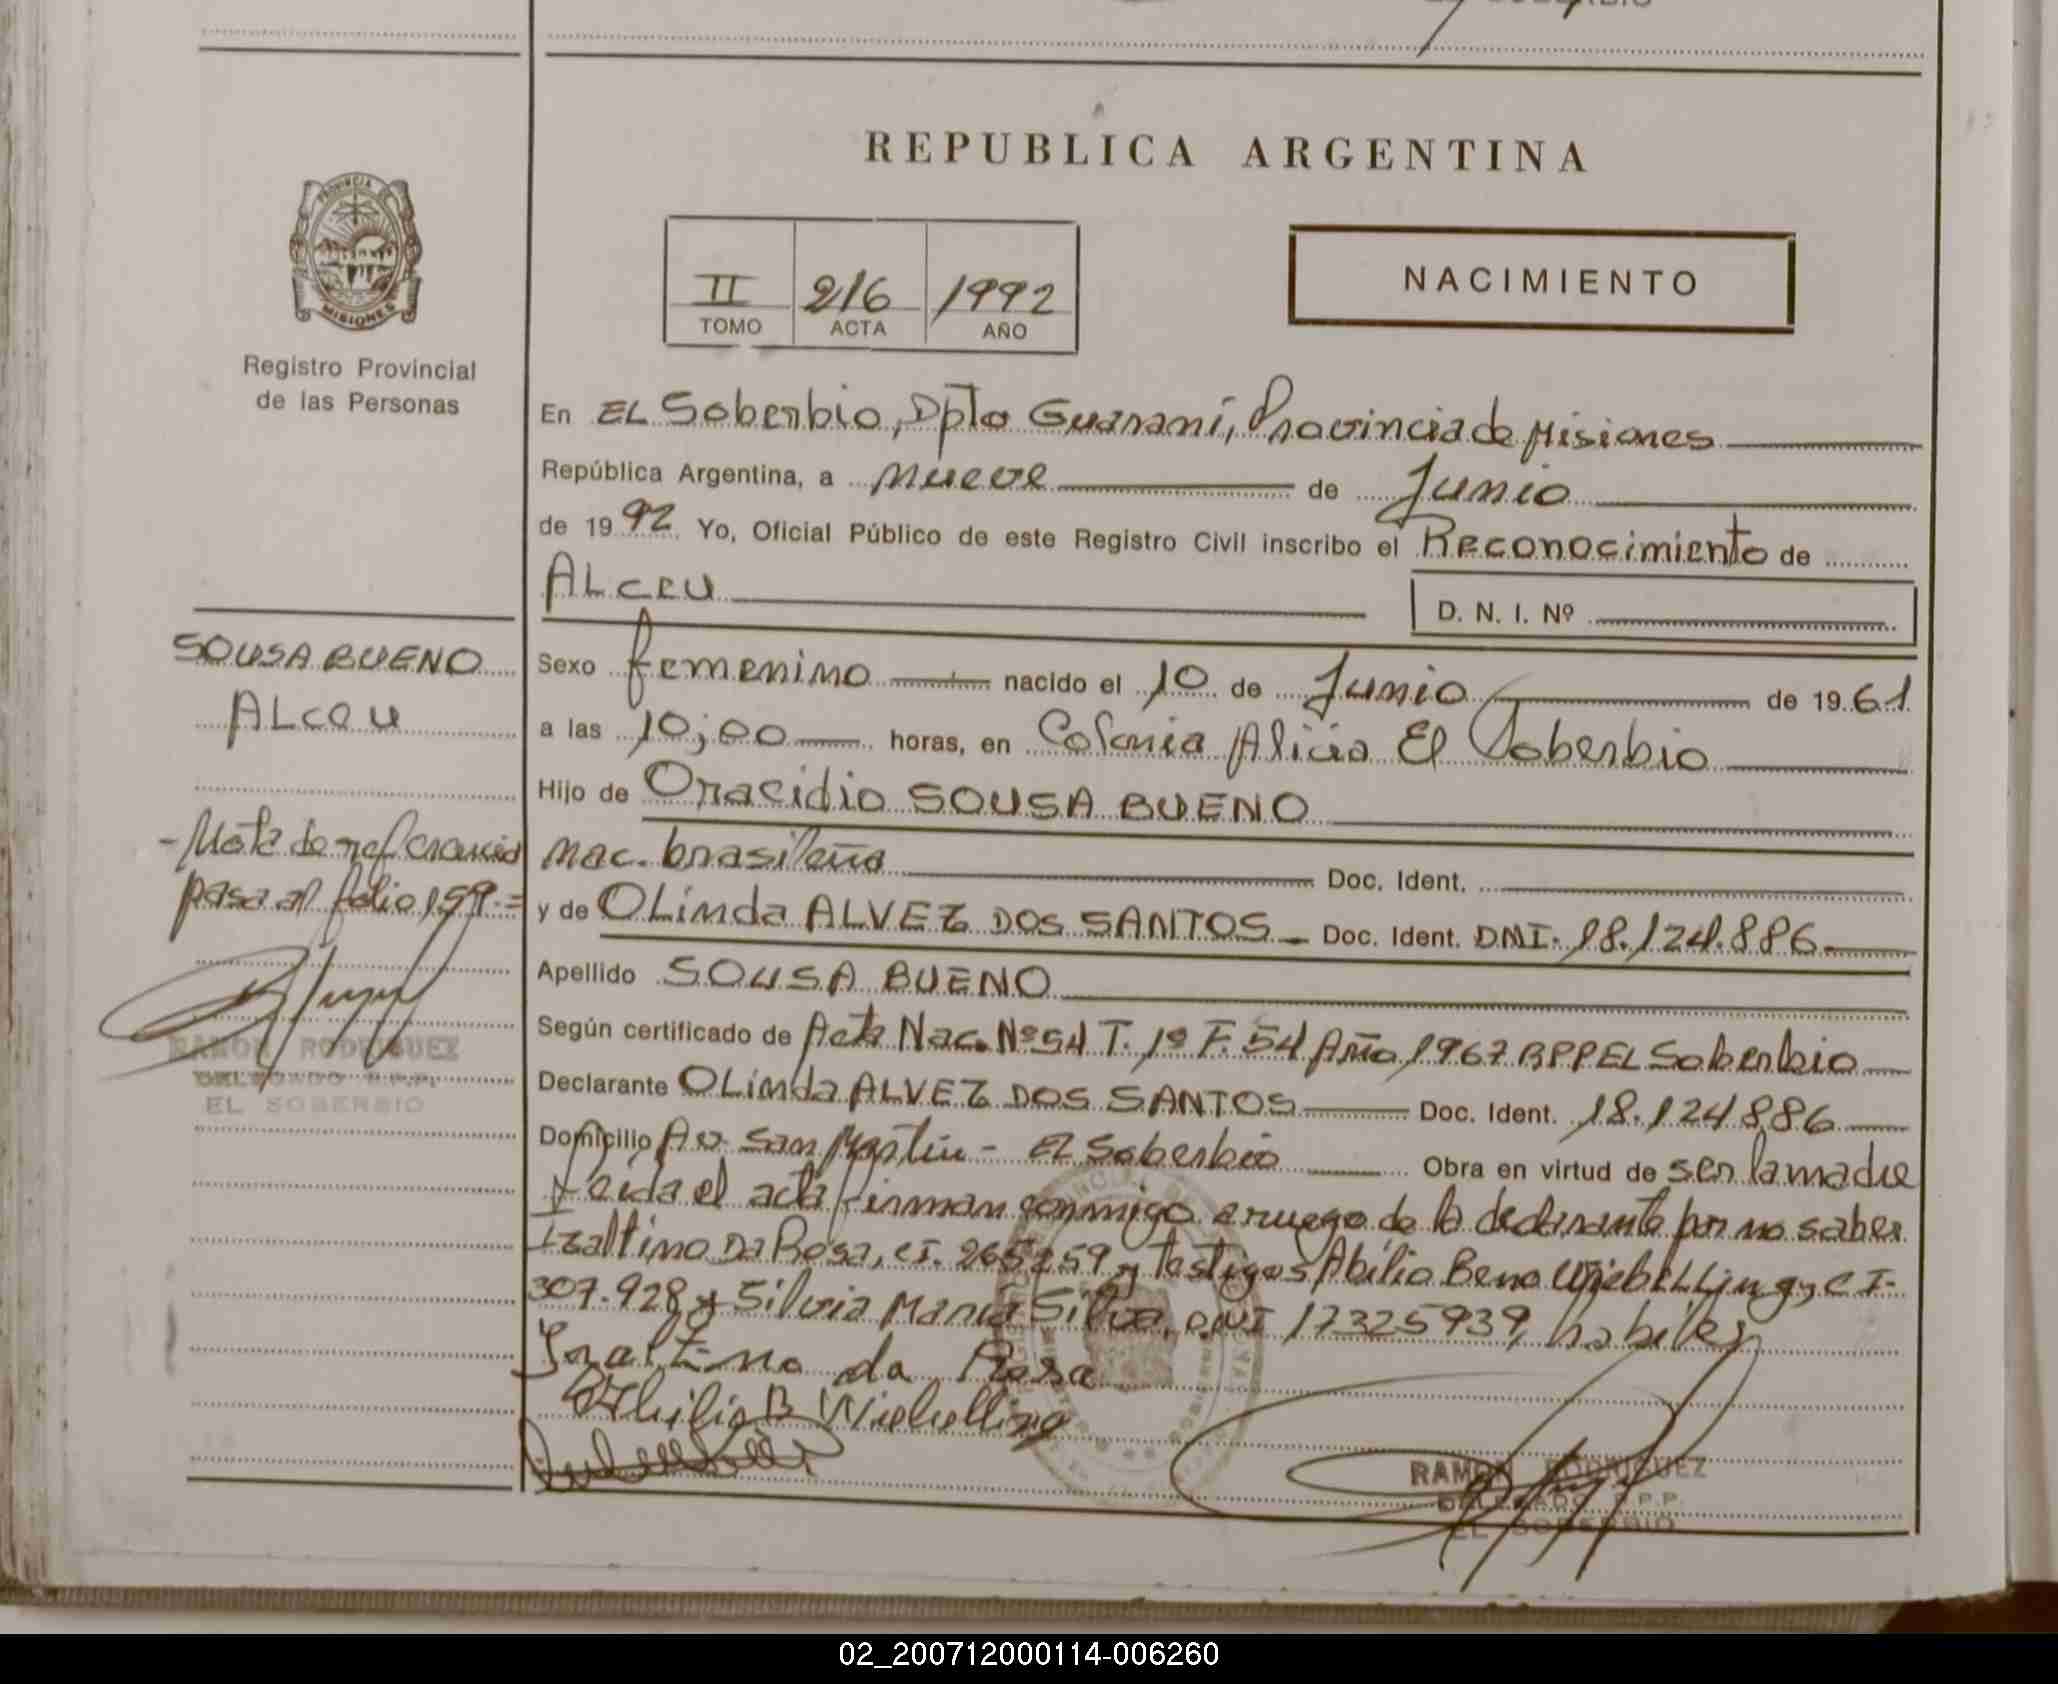 REPUBLICA ARGENTINA
PROVINCIA DE
MISIONES
Registro Provincial
de las Personas
II 216 1992
TOMO ACTA AÑO
NACIMIENTO
En EL Soberbio, Dpto Guaraní, Provincia de Misiones
República Argentina, a nueve de Junio
de 1992 Yo, Oficial Público de este Registro Civil inscribo el Reconocimiento de
ALceu
D. N. I. Nº
SOUSA BUENO
ALceu
Sexo femenino nacido el 10 de Junio de 1961
a las 10;00 horas, en Colonia Alicia El Soberbio
Hijo de Oracidio SOUSA BUENO
nac. brasileña Doc. Ident.
y de OLinda ALVEZ DOS SANTOS Doc. Ident. DNI. 18.124.886
Apellido SOUSA BUENO
Según certificado de Acta Nac. Nº 54 T. 1º F. 54 Año 1967 RPP EL Soberbio
Declarante OLinda ALVEZ DOS SANTOS Doc. Ident. 18.124.886
Domicilio Av. San Martín - El Soberbio Obra en virtud de ser la madre
Leída el acta firman conmigo a ruego de la declarante por no saber
Izaltino Da Rosa, CI. 265259 y testigos Abilio Beno WiebeLLing, CI-
307.928 y Silvia Maria Silva, DNI 17325939, habiles
Izaltino da Rosa
Abilio B Wiebelling
RAMON RODRIGUEZ
DELEGADO R.P.P.
EL SOBERBIO
- Nota de referencia
pasa al folio 159.=
RAMON RODRIGUEZ
DELEGADO R.P.P.
EL SOBERBIO
02_200712000114-006260